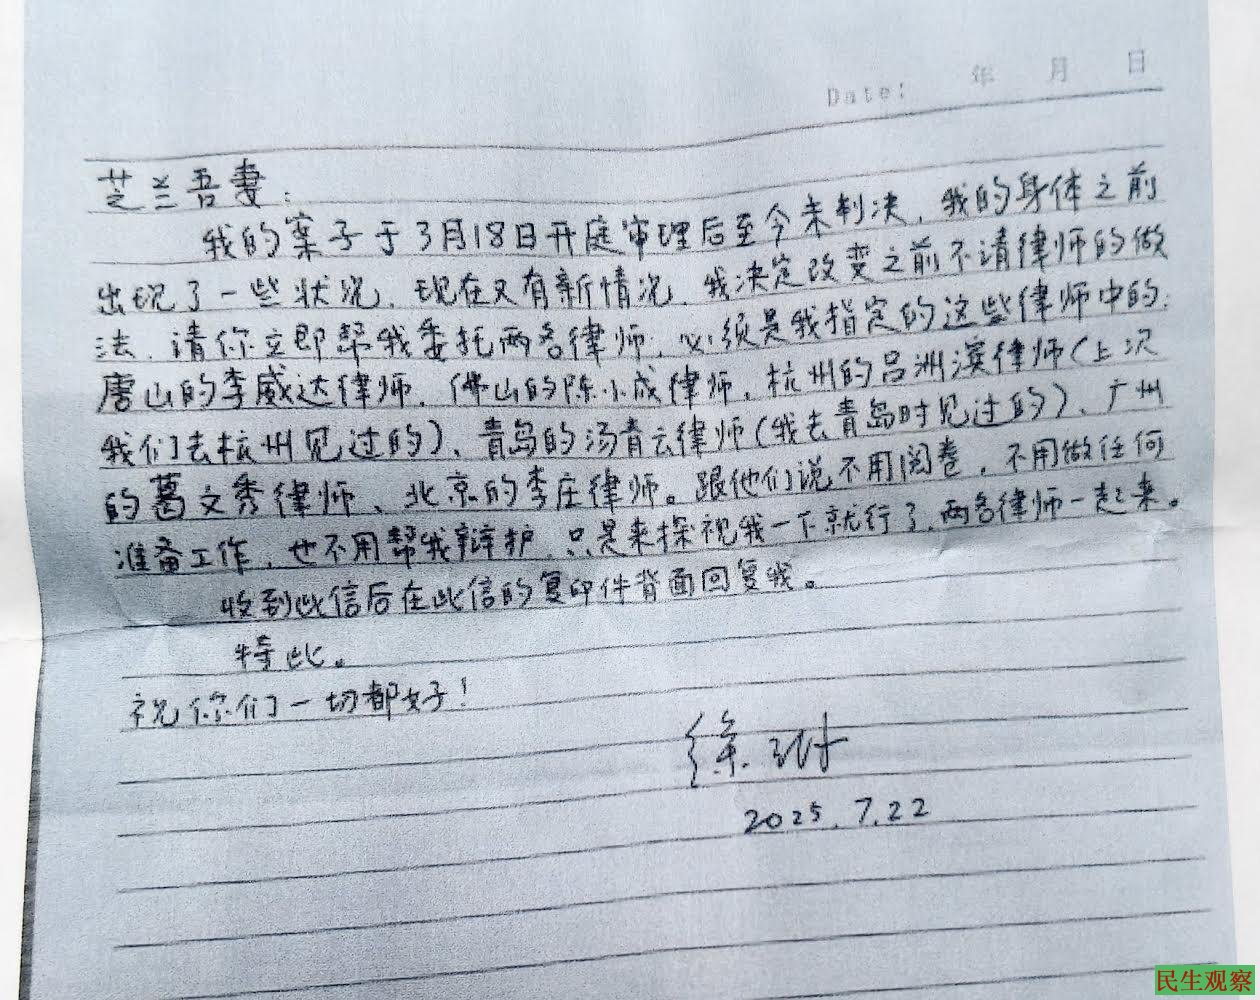 Date:    年  月  日
芝兰吾妻：
我的案子于3月18日开庭审理后至今未判决，我的身体之前
出现了一些状况，现在又有新情况，我决定改变之前不请律师的做
法，请你立即帮我委托两名律师，必须是我指定的这些律师中的：
唐山的李威达律师、佛山的陈小成律师、杭州的吕洲滨律师（上次
我们去杭州见过的）、青岛的汤青云律师（我去青岛时见过的）、广州
的葛文秀律师、北京的李庄律师。跟他们说不用阅卷，不用做任何
准备工作，也不用帮我辩护，只是来探视我一下就行了，两名律师一起来。
收到此信后在此信的复印件背面回复我。
特此。
祝你们一切都好！
徐
2025.7.22
民生观察